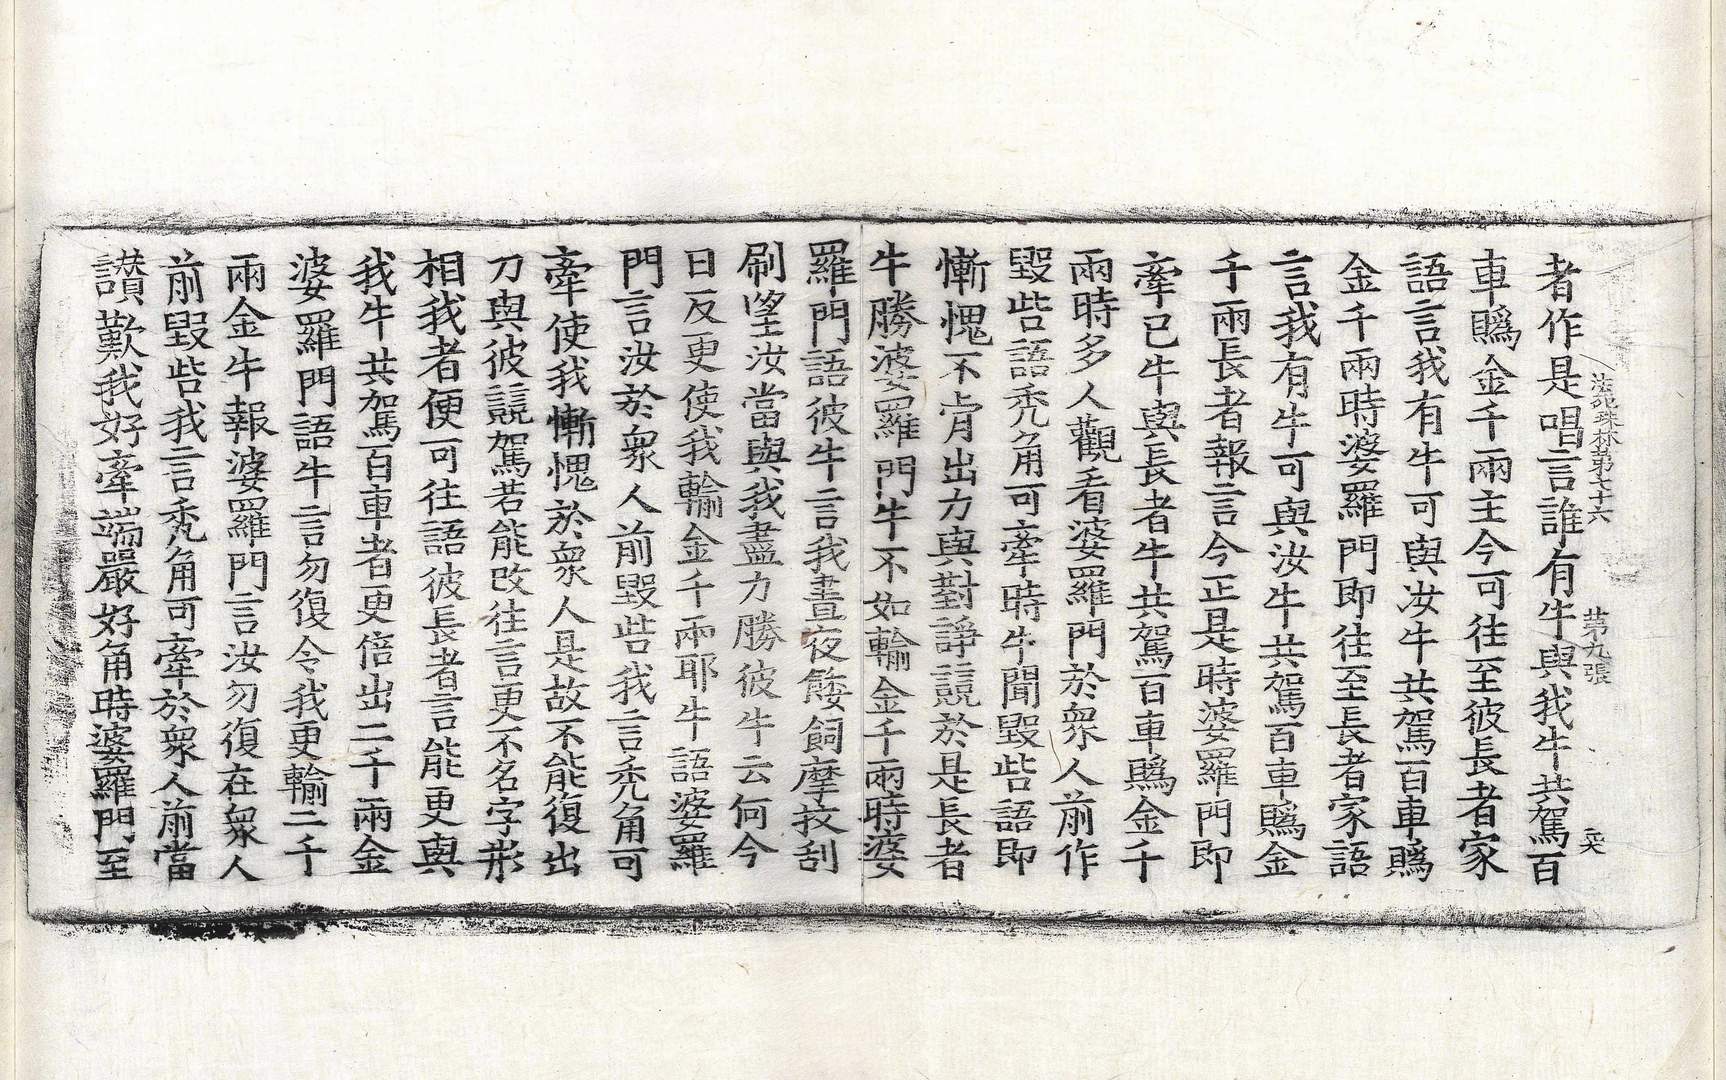 者作是唱言誰有牛與我牛共駕百
法苑珠林第七十六　第九張
車賭金千兩主今可往至彼長者家
語言我有牛可與汝牛共駕百車賭
金千兩時婆羅門即往至長者家語
言我有牛可與汝牛共駕百車賭金
千兩長者報言今正是時婆羅門即
牽已牛與長者牛共駕百車賭金千
兩時多人觀看婆羅門於眾人前作
毀呰語禿角可牽時牛聞毀呰語即
慚愧不肯出力與對諍競於是長者
牛勝婆羅門牛不如輸金千兩時婆
羅門語彼牛言我晝夜餧飼摩抆刮
刷望汝當與我盡力勝彼牛云何今
日反更使我輸金千兩耶牛語婆羅
門言汝於眾人前毀呰我言禿角可
牽使我慚愧於眾人是故不能復出
力與彼競駕若能改往言更不名字形
相我者便可往語彼長者言能更與
我牛共駕百車者更倍出二千兩金
婆羅門語牛言勿復令我更輸二千
兩金牛報婆羅門言汝勿復在眾人
前毀呰我言禿角可牽於眾人前當
讚歎我好牽端嚴好角時婆羅門至